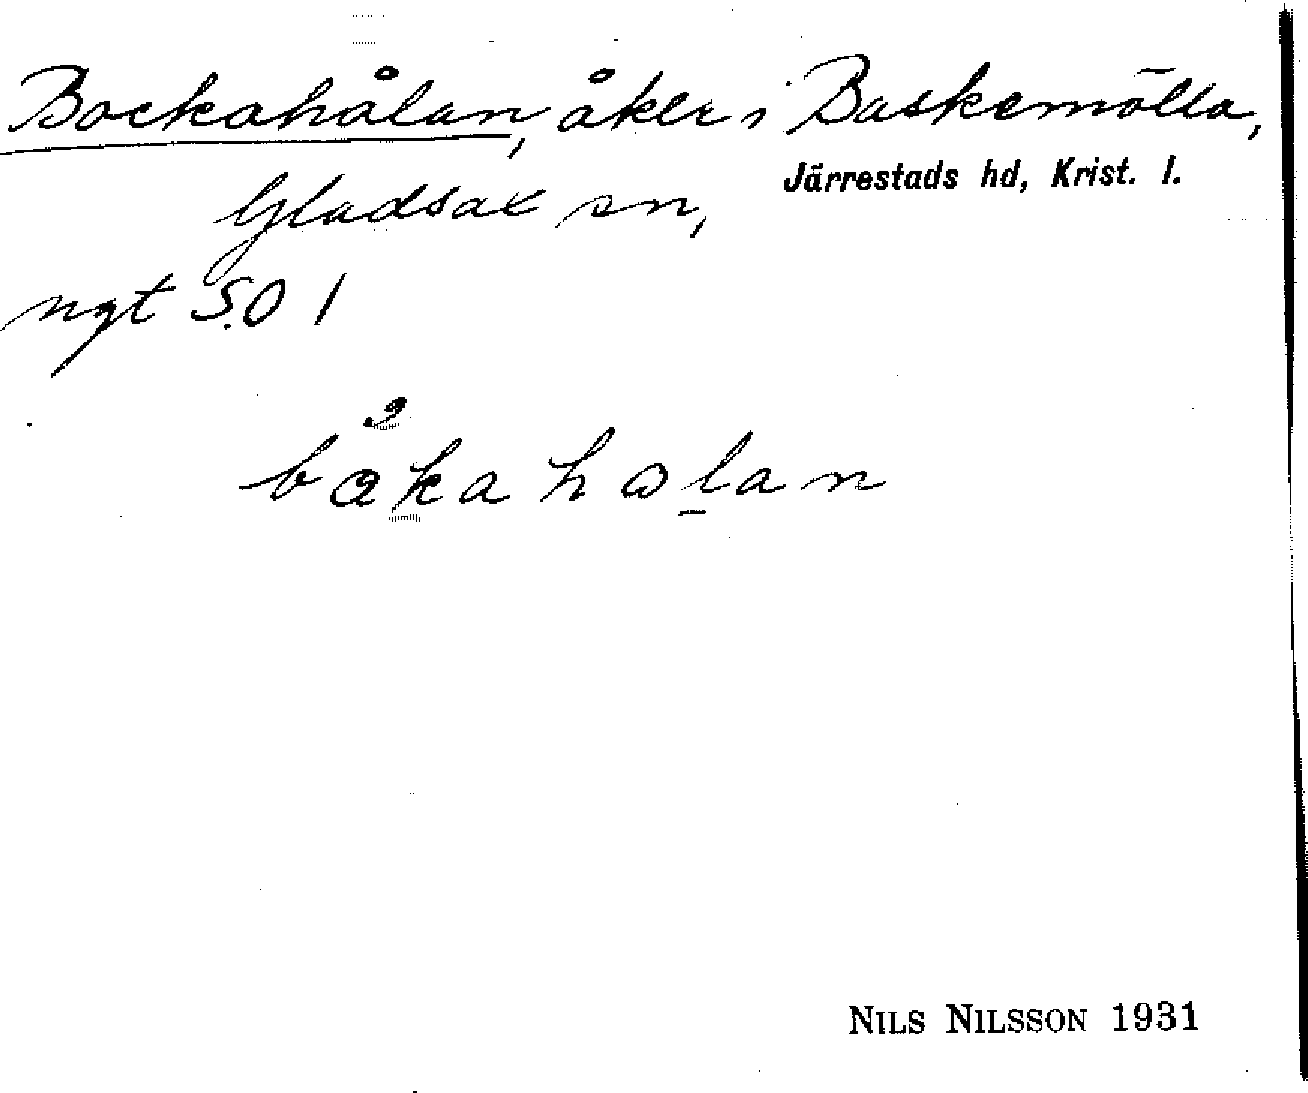 Bockahålan, åker i Baskemölla,
Järrestads hd, Krist. l.
Gladsax sn,
ngt S.O 1
båkahωlan
NILS NILSSON 1931